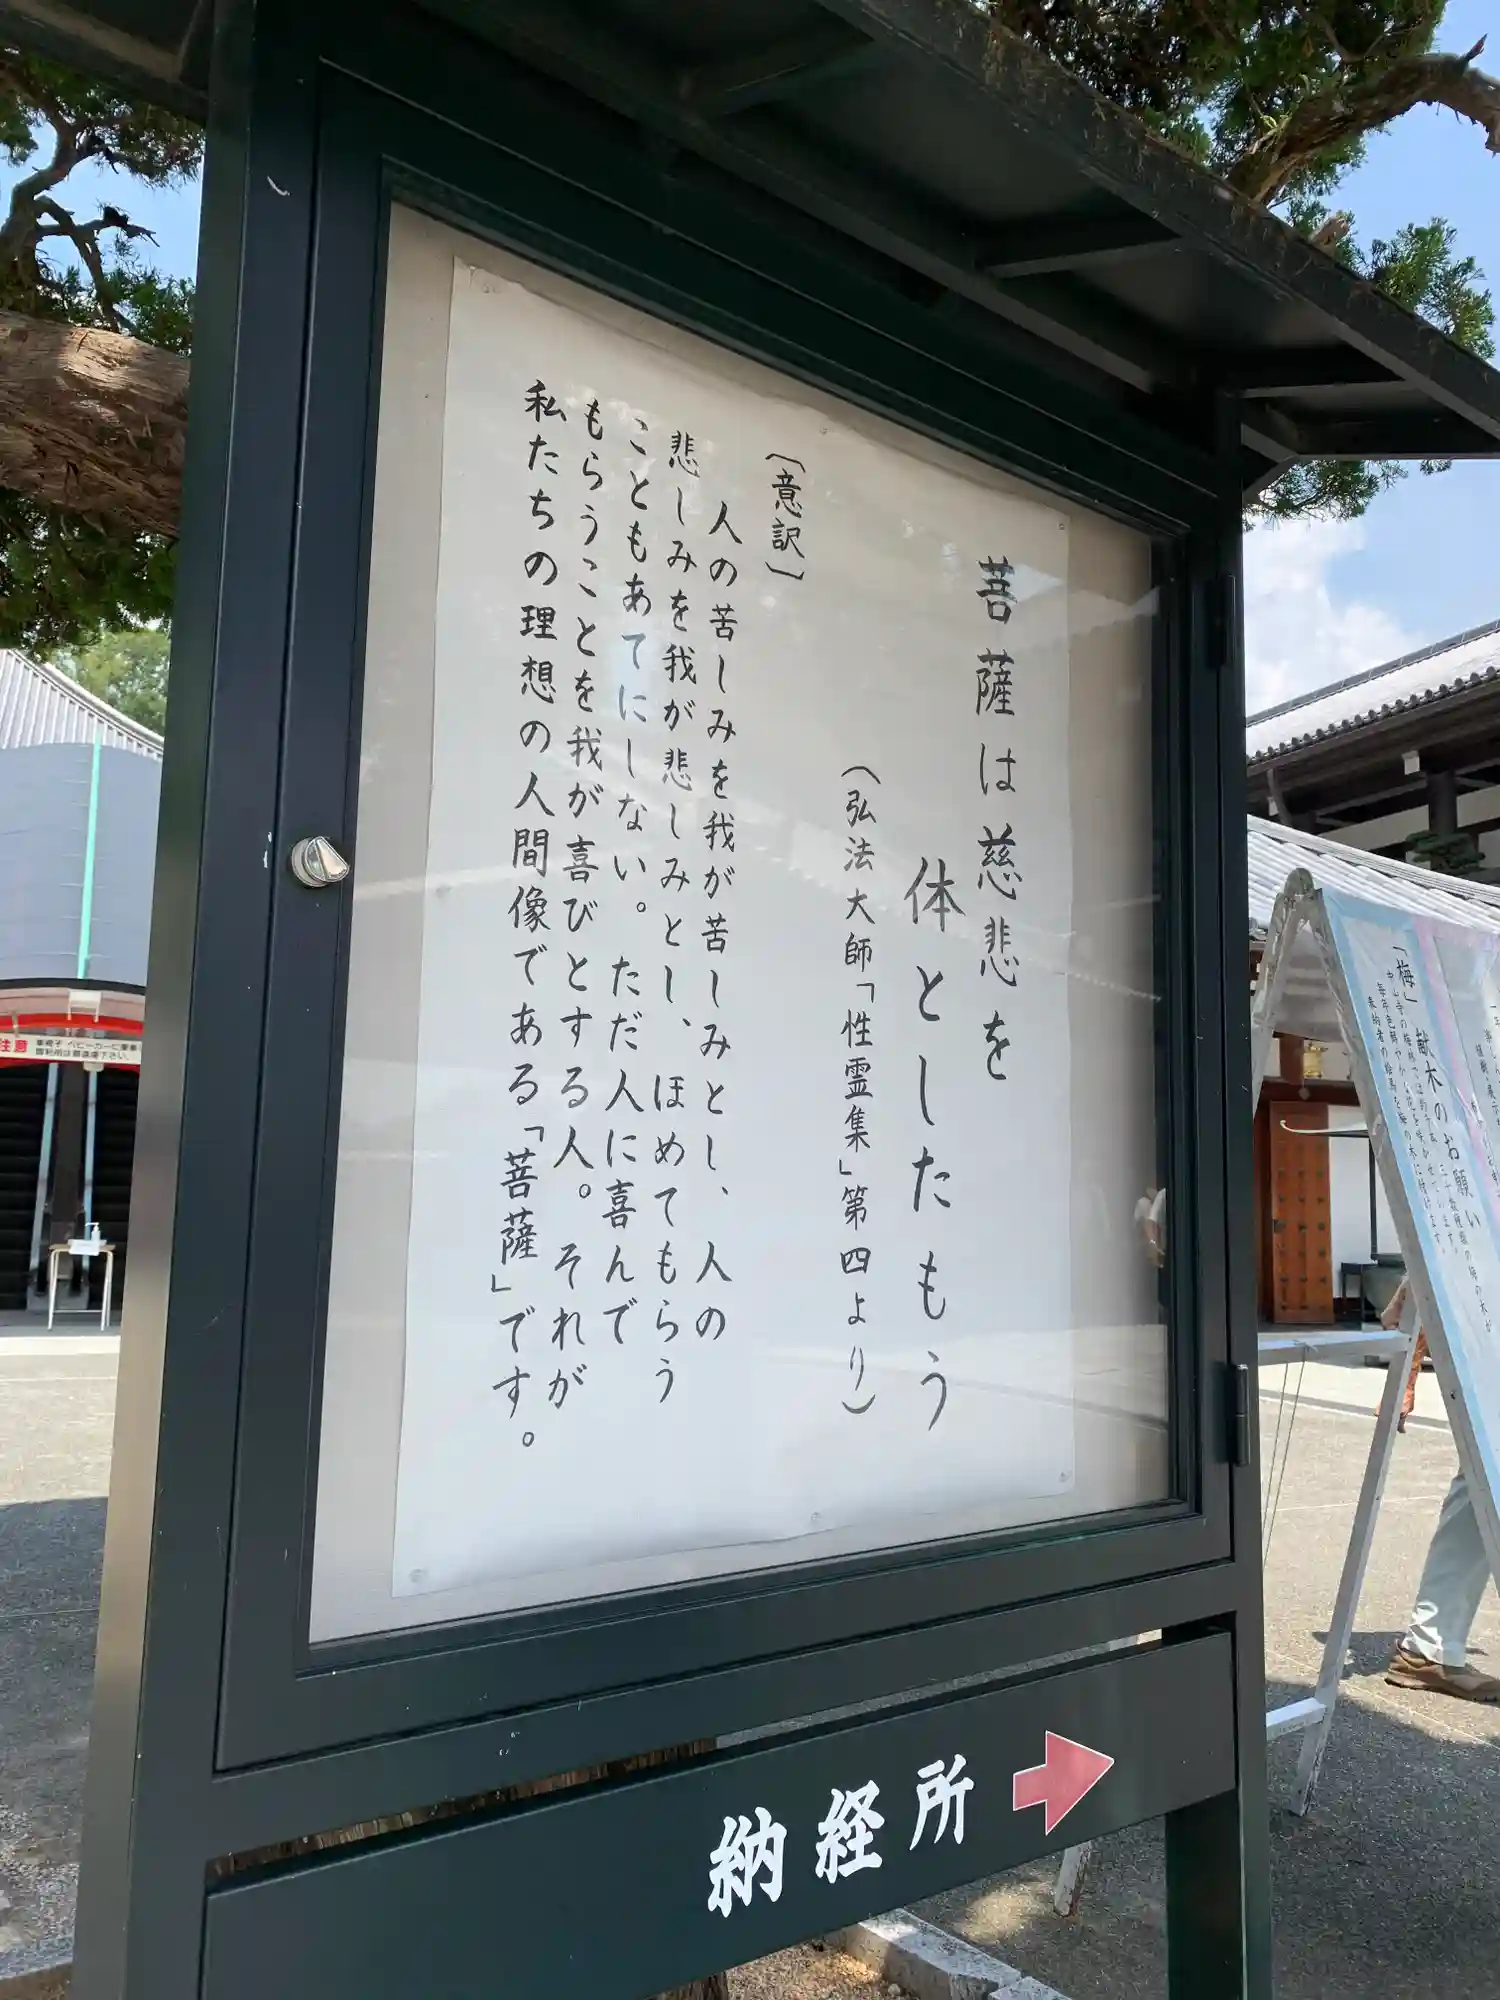 菩薩は慈悲を
体としたもう
（弘法大師「性霊集」第四より）
〔意訳〕
人の苦しみを我が苦しみとし、人の
悲しみを我が悲しみとし、ほめてもらう
こともあてにしない。ただ人に喜んで
もらうことを我が喜びとする人。それが
私たちの理想の人間像である「菩薩」です。
納経所
「梅」献木のお願い
注意